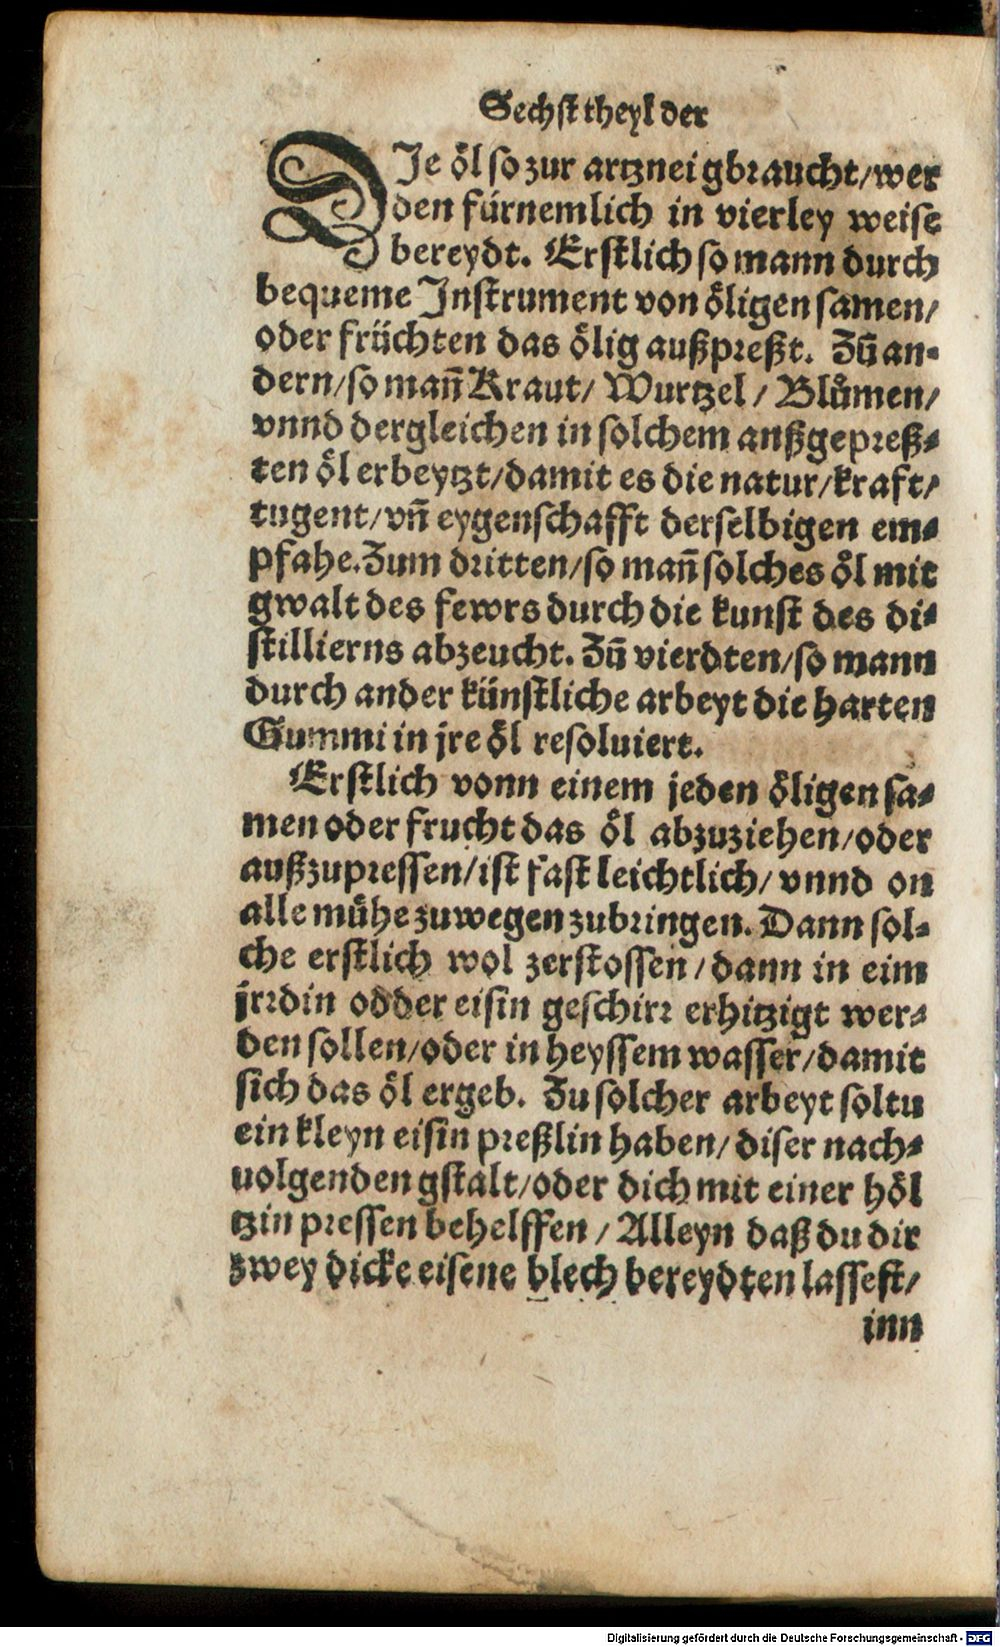 Sechst theyl der
DIe öl so zur artznei gbraucht/wer
den fürnemlich in vierley weise
bereydt. Erstlich so mann durch
bequeme Instrument von öligen samen/
oder früchten das ölig außpreßt. Zũ an-
dern/so mañ Kraut/ Wurtzel / Blůmen/
vnnd dergleichen in solchem anßgepreß-
ten öl erbeytzt/damit es die natur/kraft/
tugent/vñ eygenschafft derselbigen em-
pfahe. Zum dritten/so mañ solches öl mit
gwalt des fewrs durch die kunst des di-
stillierns abzeucht. Zũ vierdten/so mann
durch ander künstliche arbeyt die harten
Gummi in jre öl resoluiert.
Erstlich vonn einem jeden öligen sa-
men oder frucht das öl abzuziehen/oder
außzupressen/ist fast leichtlich/ vnnd on
alle mühe zuwegen zubringen. Dann sol-
che erstlich wol zerstossen / dann in eim
jrrdin odder eisin geschirr erhitzigt wer-
den sollen/oder in heyssem wasser/damit
sich das öl ergeb. Zu solcher arbeyt soltu
ein kleyn eisin preßlin haben/ diser nach-
uolgenden gstalt/oder dich mit einer höl
tzin pressen behelffen / Alleyn daß du dir
zwey dicke eisene blech bereydten lassest/
inn
Digitalisierung gefördert durch die Deutsche Forschungsgemeinschaft - DFG